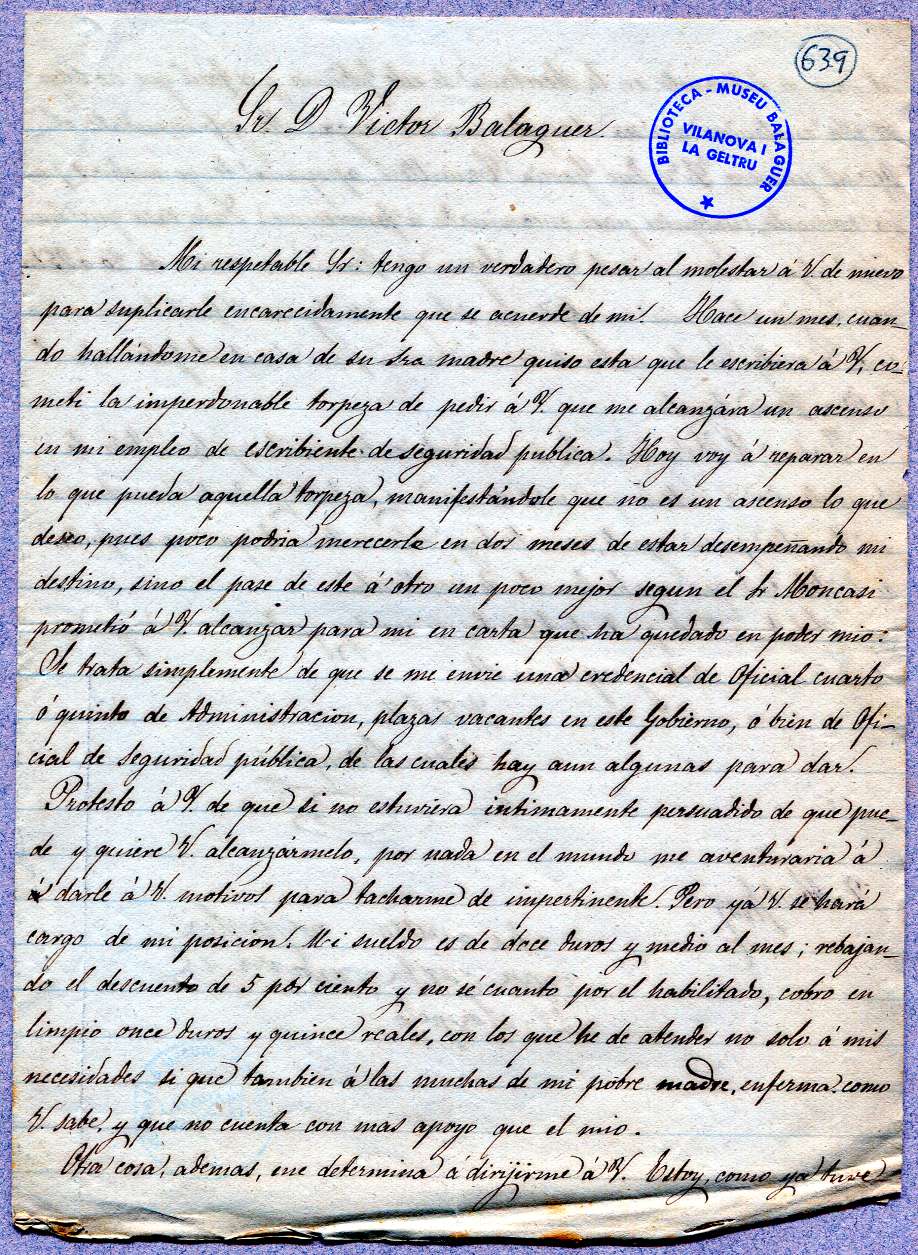 639
Sr. D. Victor Balaguer.
BIBLIOTECA - MUSEU BALAGUER
VILANOVA I
LA GELTRU
Mi respetable Sr: tengo un verdadero pesar al molestar á V. de nuevo
para suplicarle encarecidamente que se acuerde de mi. Hace un mes, cuan-
do hallándome en casa de su Sra madre quiso esta que le escribiera á V, co-
metí la imperdonable torpeza de pedir á V. que me alcanzára un ascenso
en mi empleo de escribiente de seguridad pública. Hoy voy á reparar en
lo que pueda aquella torpeza, manifestándole que no es un ascenso lo que
deseo, pues poco podria merecerle en dos meses de estar desempeñando mi
destino, sino el pase de este á otro un poco mejor segun el Sr Moncasi
prometió á V. alcanzar para mi en carta que ha quedado en poder mio:
Se trata simplemente de que se me envie una credencial de Oficial cuarto
ó quinto de Administracion, plazas vacantes en este Gobierno, ó bien de Ofi-
cial de seguridad pública, de las cuales hay aun algunas para dar.
Protesto á V. de que si no estuviera intimamente persuadido de que pue-
de y quiere V. alcanzármelo, por nada en el mundo me aventuraria á
á darle á V. motivos para tacharme de impertinente. Pero yá V. se hará
cargo de mi posicion. Mi sueldo es de doce duros y medio al mes; rebajan-
do el descuento de 5 por ciento y no sé cuanto por el habilitado, cobro en
limpio once duros y quince reales, con los que he de atender no solo á mis
necesidades si que tambien á las muchas de mi pobre madre, enferma como
V. sabe, y que no cuenta con mas apoyo que el mio.
Otra cosa, ademas, me determina á dirijirme á V. Estoy, como ya tuve